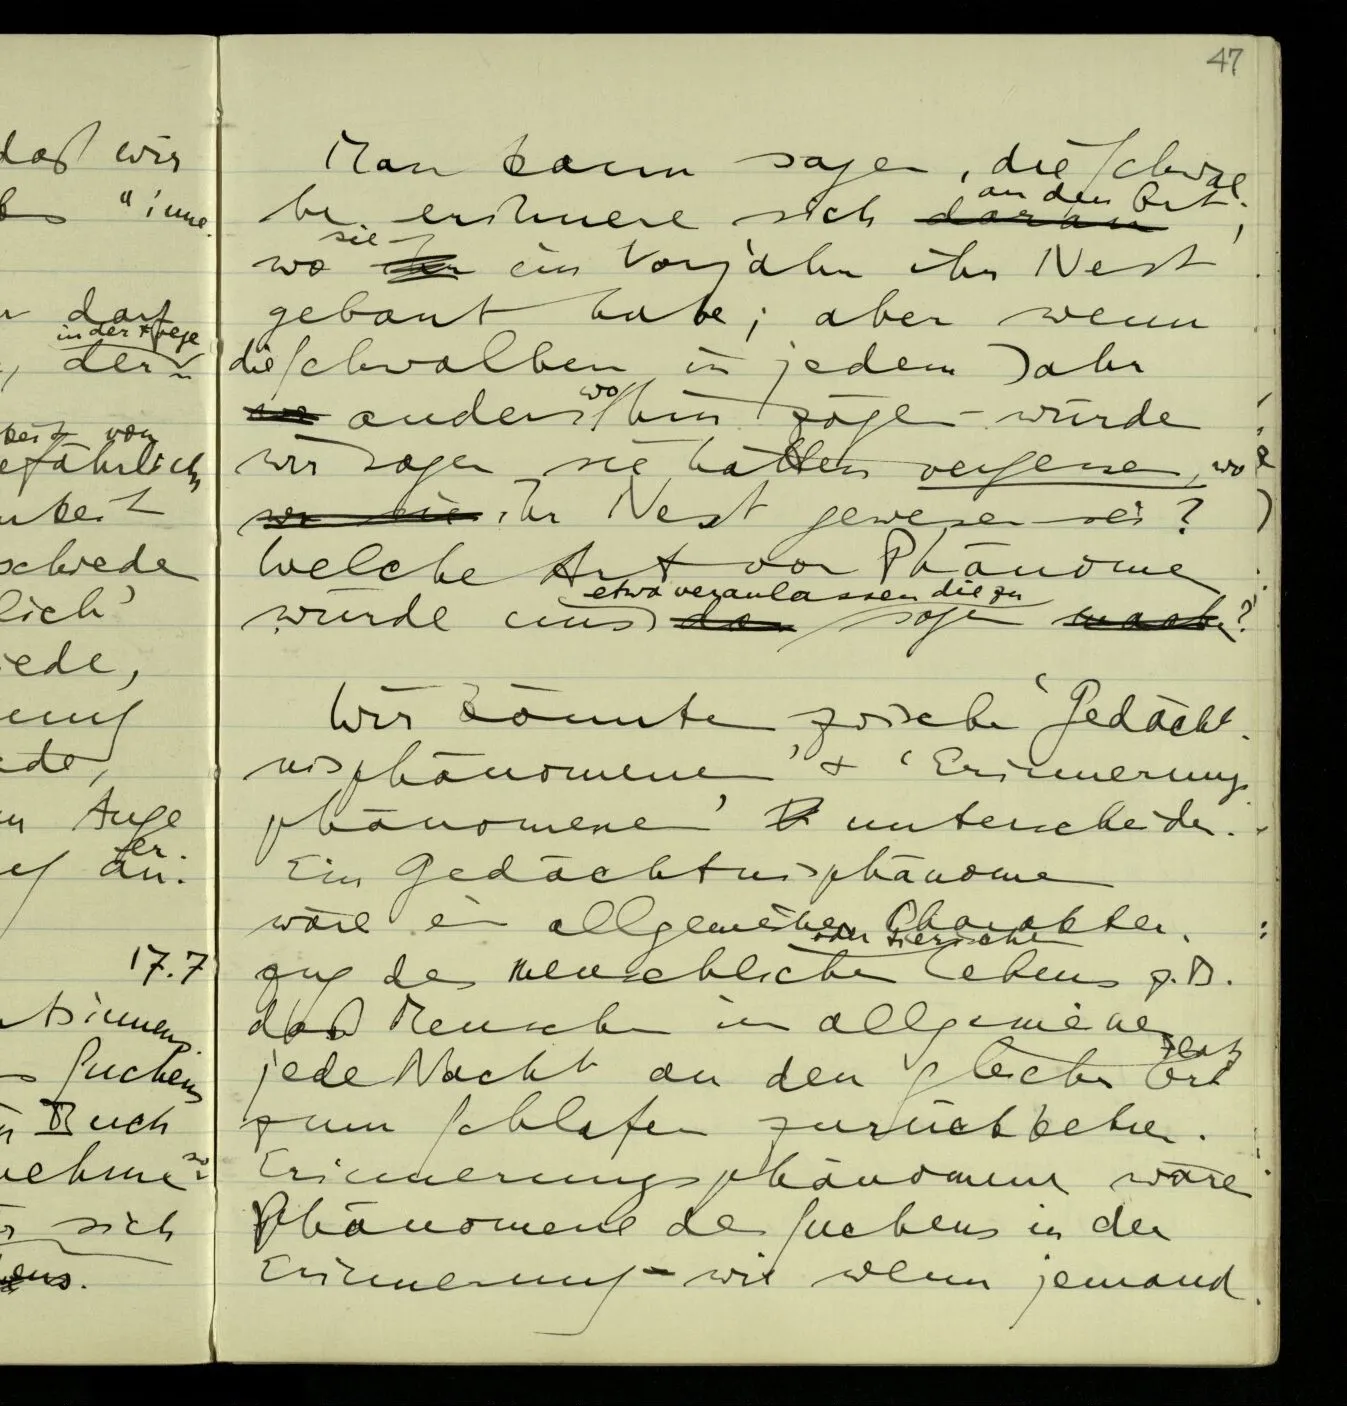 47
daß wir
"inne-
darf
in der Folge
der
keit von
efährlich
nkeit
schiede
lich'
iede,
nung
ede,
Auge
er-
auf an-
17.7
Suchens
Buch
nehme
sich
Man kann sagen, die Schwal-
an den Ort
be erinnere sich daran,
sie
wo ihr im Vorjahr ihr Nest
gebaut habe; aber wenn
die Schwalben in jedem Jahr
wo
wo anders hin zögen – würden
wir sagen sie hätten vergessen, wo
wo sie ihr Nest gewesen sei?
Welche Art von Phänomen
etwa veranlassen die zu
würde uns sagen ?
Wir könnten zwischen 'Gedächt-
nisphänomenen' & 'Erinnerungs
phänomenen' unterscheiden.
Ein Gedächtnisphänomen
wäre ein allgemeiner Charakter-
oder tierischen
zug des menschlichen Lebens z.B.
daß Menschen im allgemeinen
Platz
jede Nacht an den gleichen Ort
zum Schlafen zurückkehren.
Erinnerungsphänomene wären
Phänomene des Suchens in der
Erinnerung – wie wenn jemand